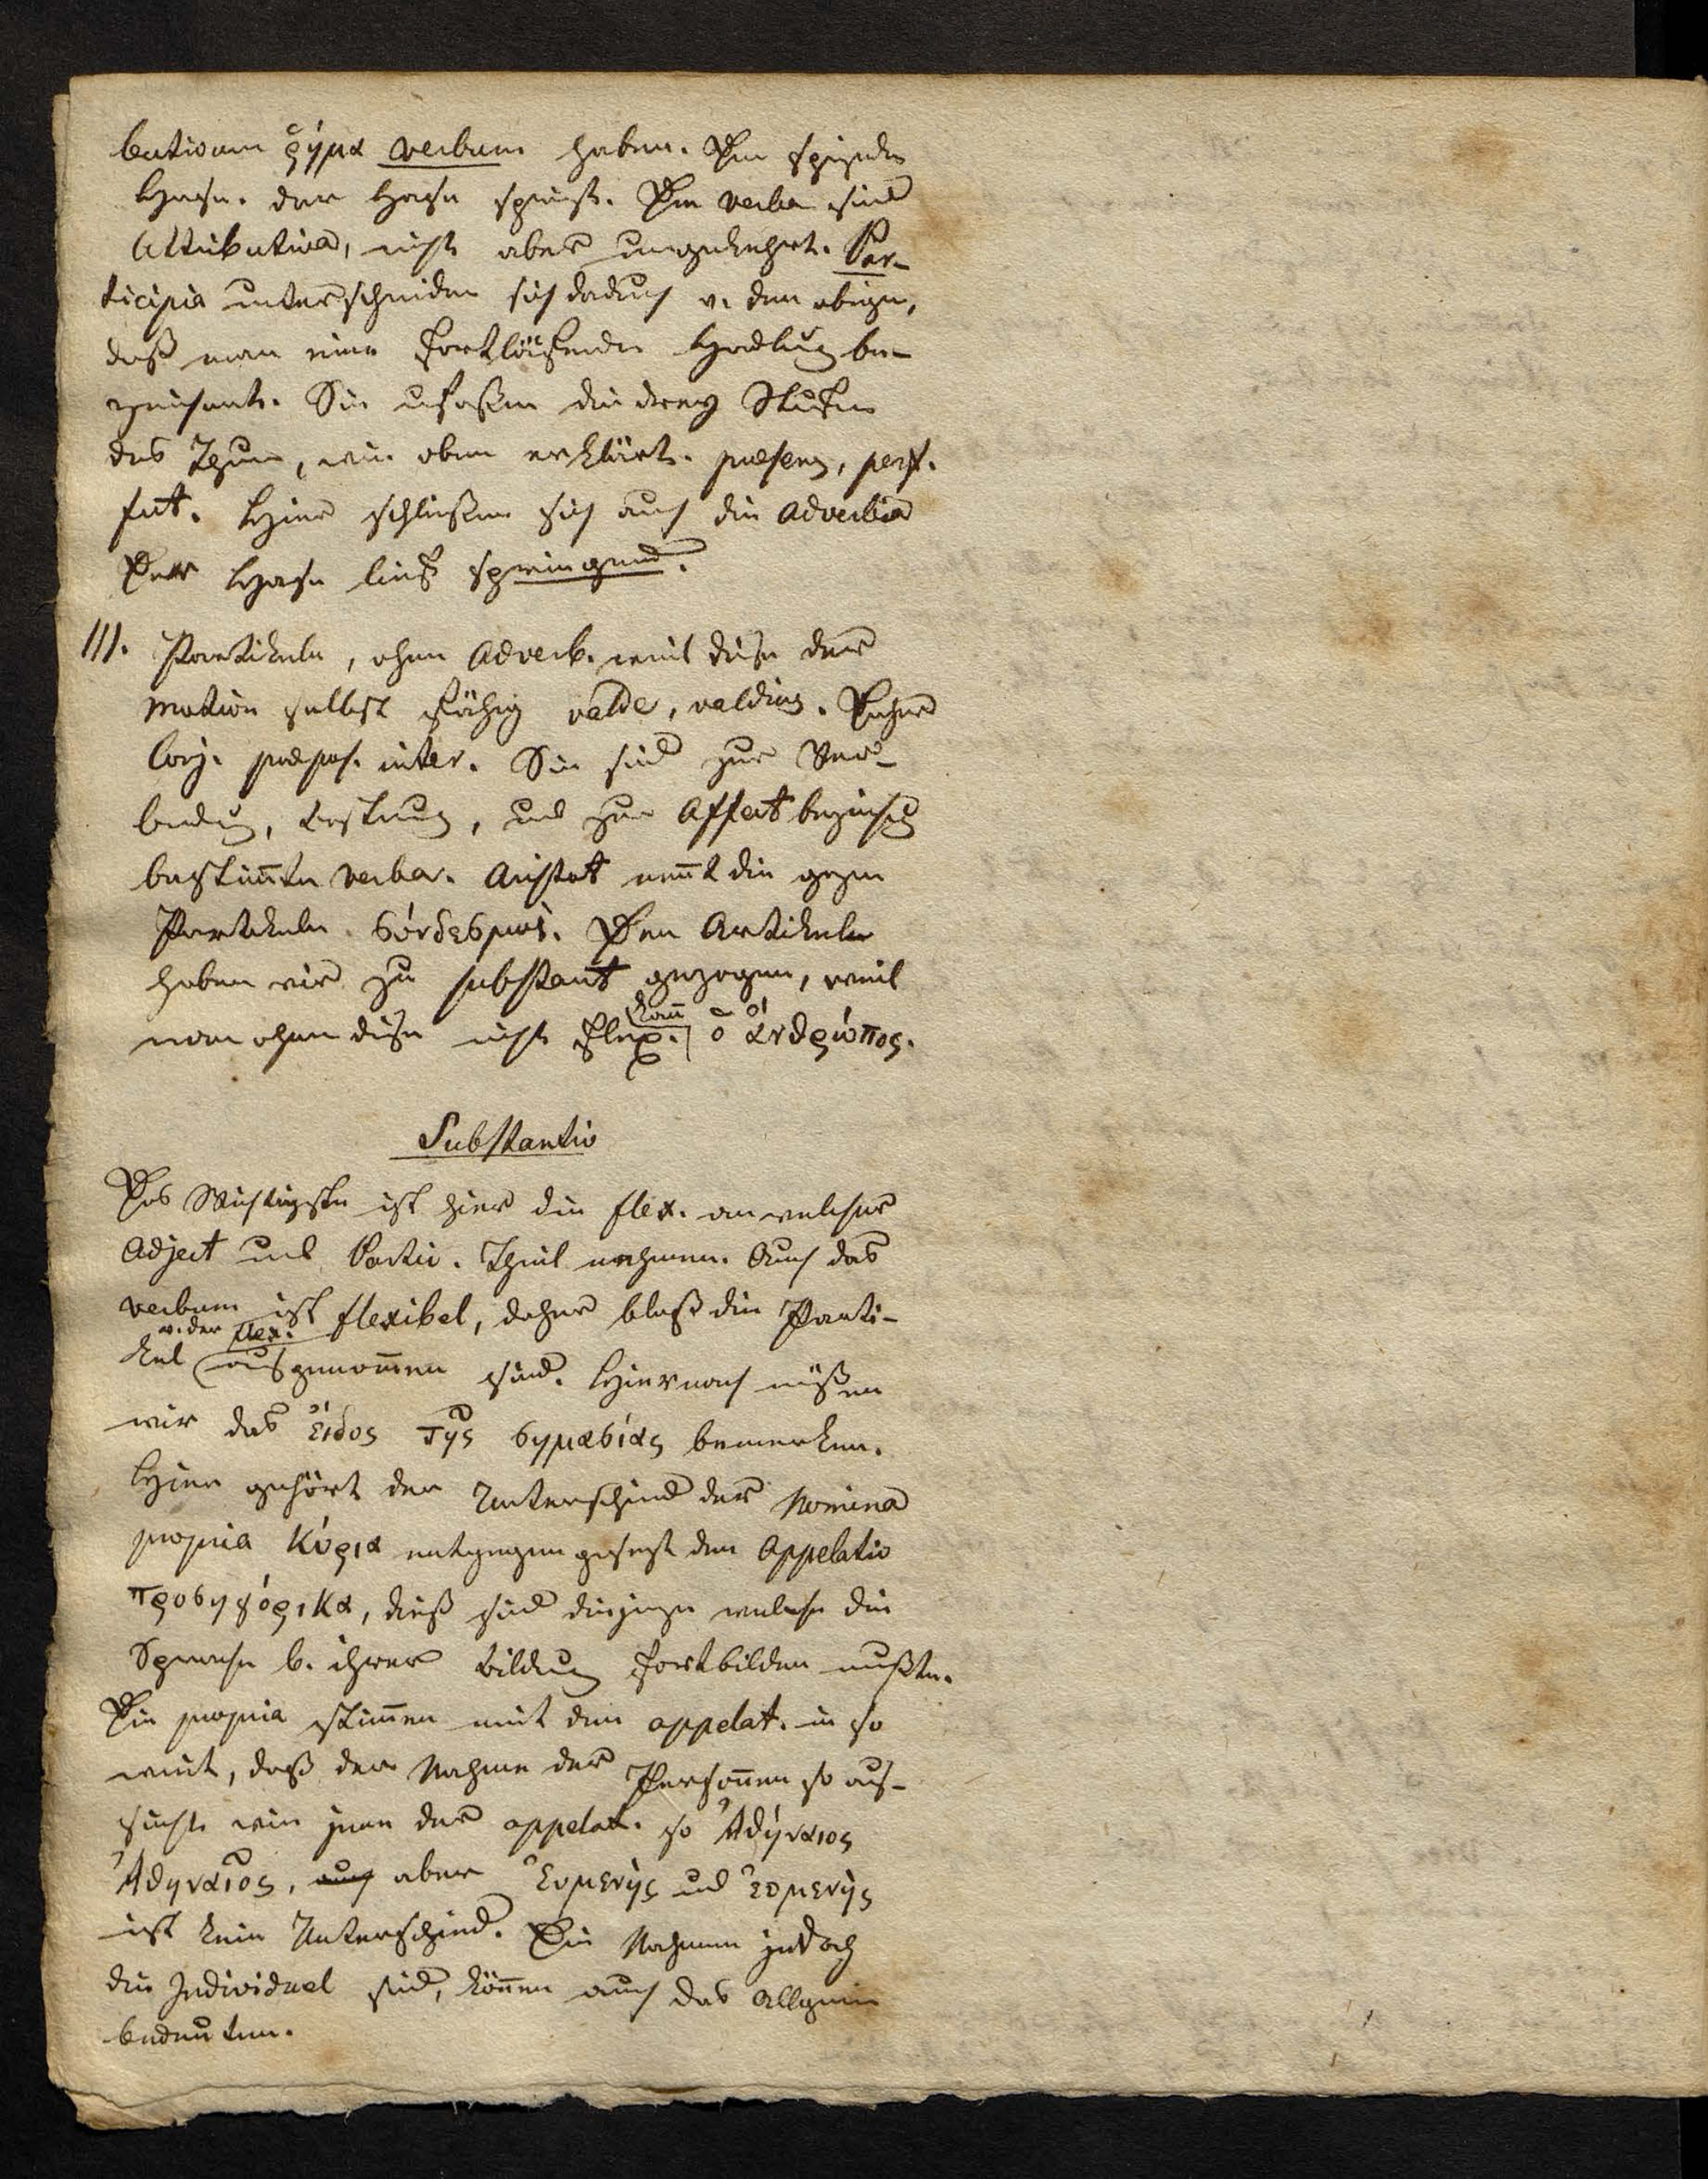 butivum ῥήμα verbum haben. Der speisende
Hase. der Hase speist. Die verba sind
Attributiva, nicht aber umgekehrt. Par-
ticipia unterscheiden sich dadurch v. den obigen,
daß man eine fortlaufende Handlung be-
zeichnet. Sie umfaßen die drey Stufen
des Thuns, wie oben erklärt. praesens, perf.
fut. Hier schließen sich auch die Adverbia
Der Hase lief springend.
III. Partikeln, ohne Adverb. weil diese der
Motion selbst fähig valde, valdius. Daher
Conj. praepos. inter. Sie sind zur Ver-
bindung, und zur Affect
bestim̅te verba. Aristot nen̅t die gegen
Partikeln σύνδεσμοὶ. Den Artikel
haben wir zu substant gezogen, weil
man ohne diese nicht flex. kan̅ ὁ ἄνθρώπος.
Substantiv
Das Wichtigste ist hier die flex. an welcher
Adject und Partic. Theil nehmen. Auch das
verbum ist flexibel, daher bloß die Parti-
kel v. der flex. ausgenom̅en sind. Hiernach müßen
wir das εἴδος τῆς σημασίας bemerken.
Hier gehört der Unterschied der Nomina
propria Κύρια entgegengesezt den Appelativ
προσηγόρικα, dieß sind diejenige welche die
Sprache b. ihrer Bildung fortbilden mußte.
Die propria stim̅en mit den appelat. in so
weit, daß der Nahme der Person̅en so aus-
sieht wie jene der appelat. so Ἀθήναιος
Ἀθηναῖος, auch aber Ἐυμενής und ἐυμενὴς
ist kein Unterschied. Die Nahmen jedoch
die Individuel sind, kön̅en auch das Allgemein
bedeuten.